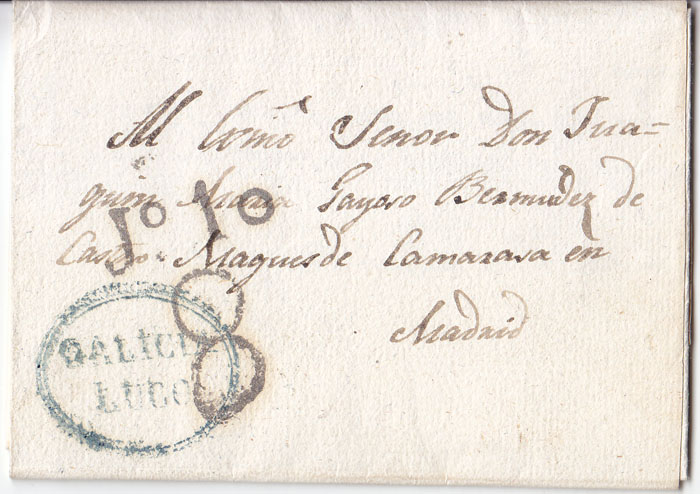 Al Exmõ Señor Don Jua=
quin Maria Gayoso Bermudez de
Castro Maques de Camarasa en
Madrid
Jº 10
GALICIA
LUGO